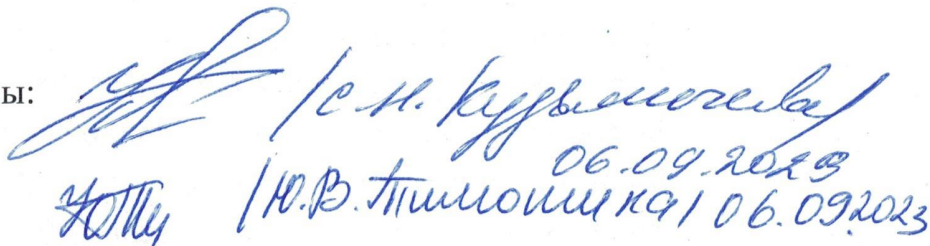 ы: /С.Н. Кузьмичева/
06.09.2023
/Ю.В. Тимошина/ 06.09.2023